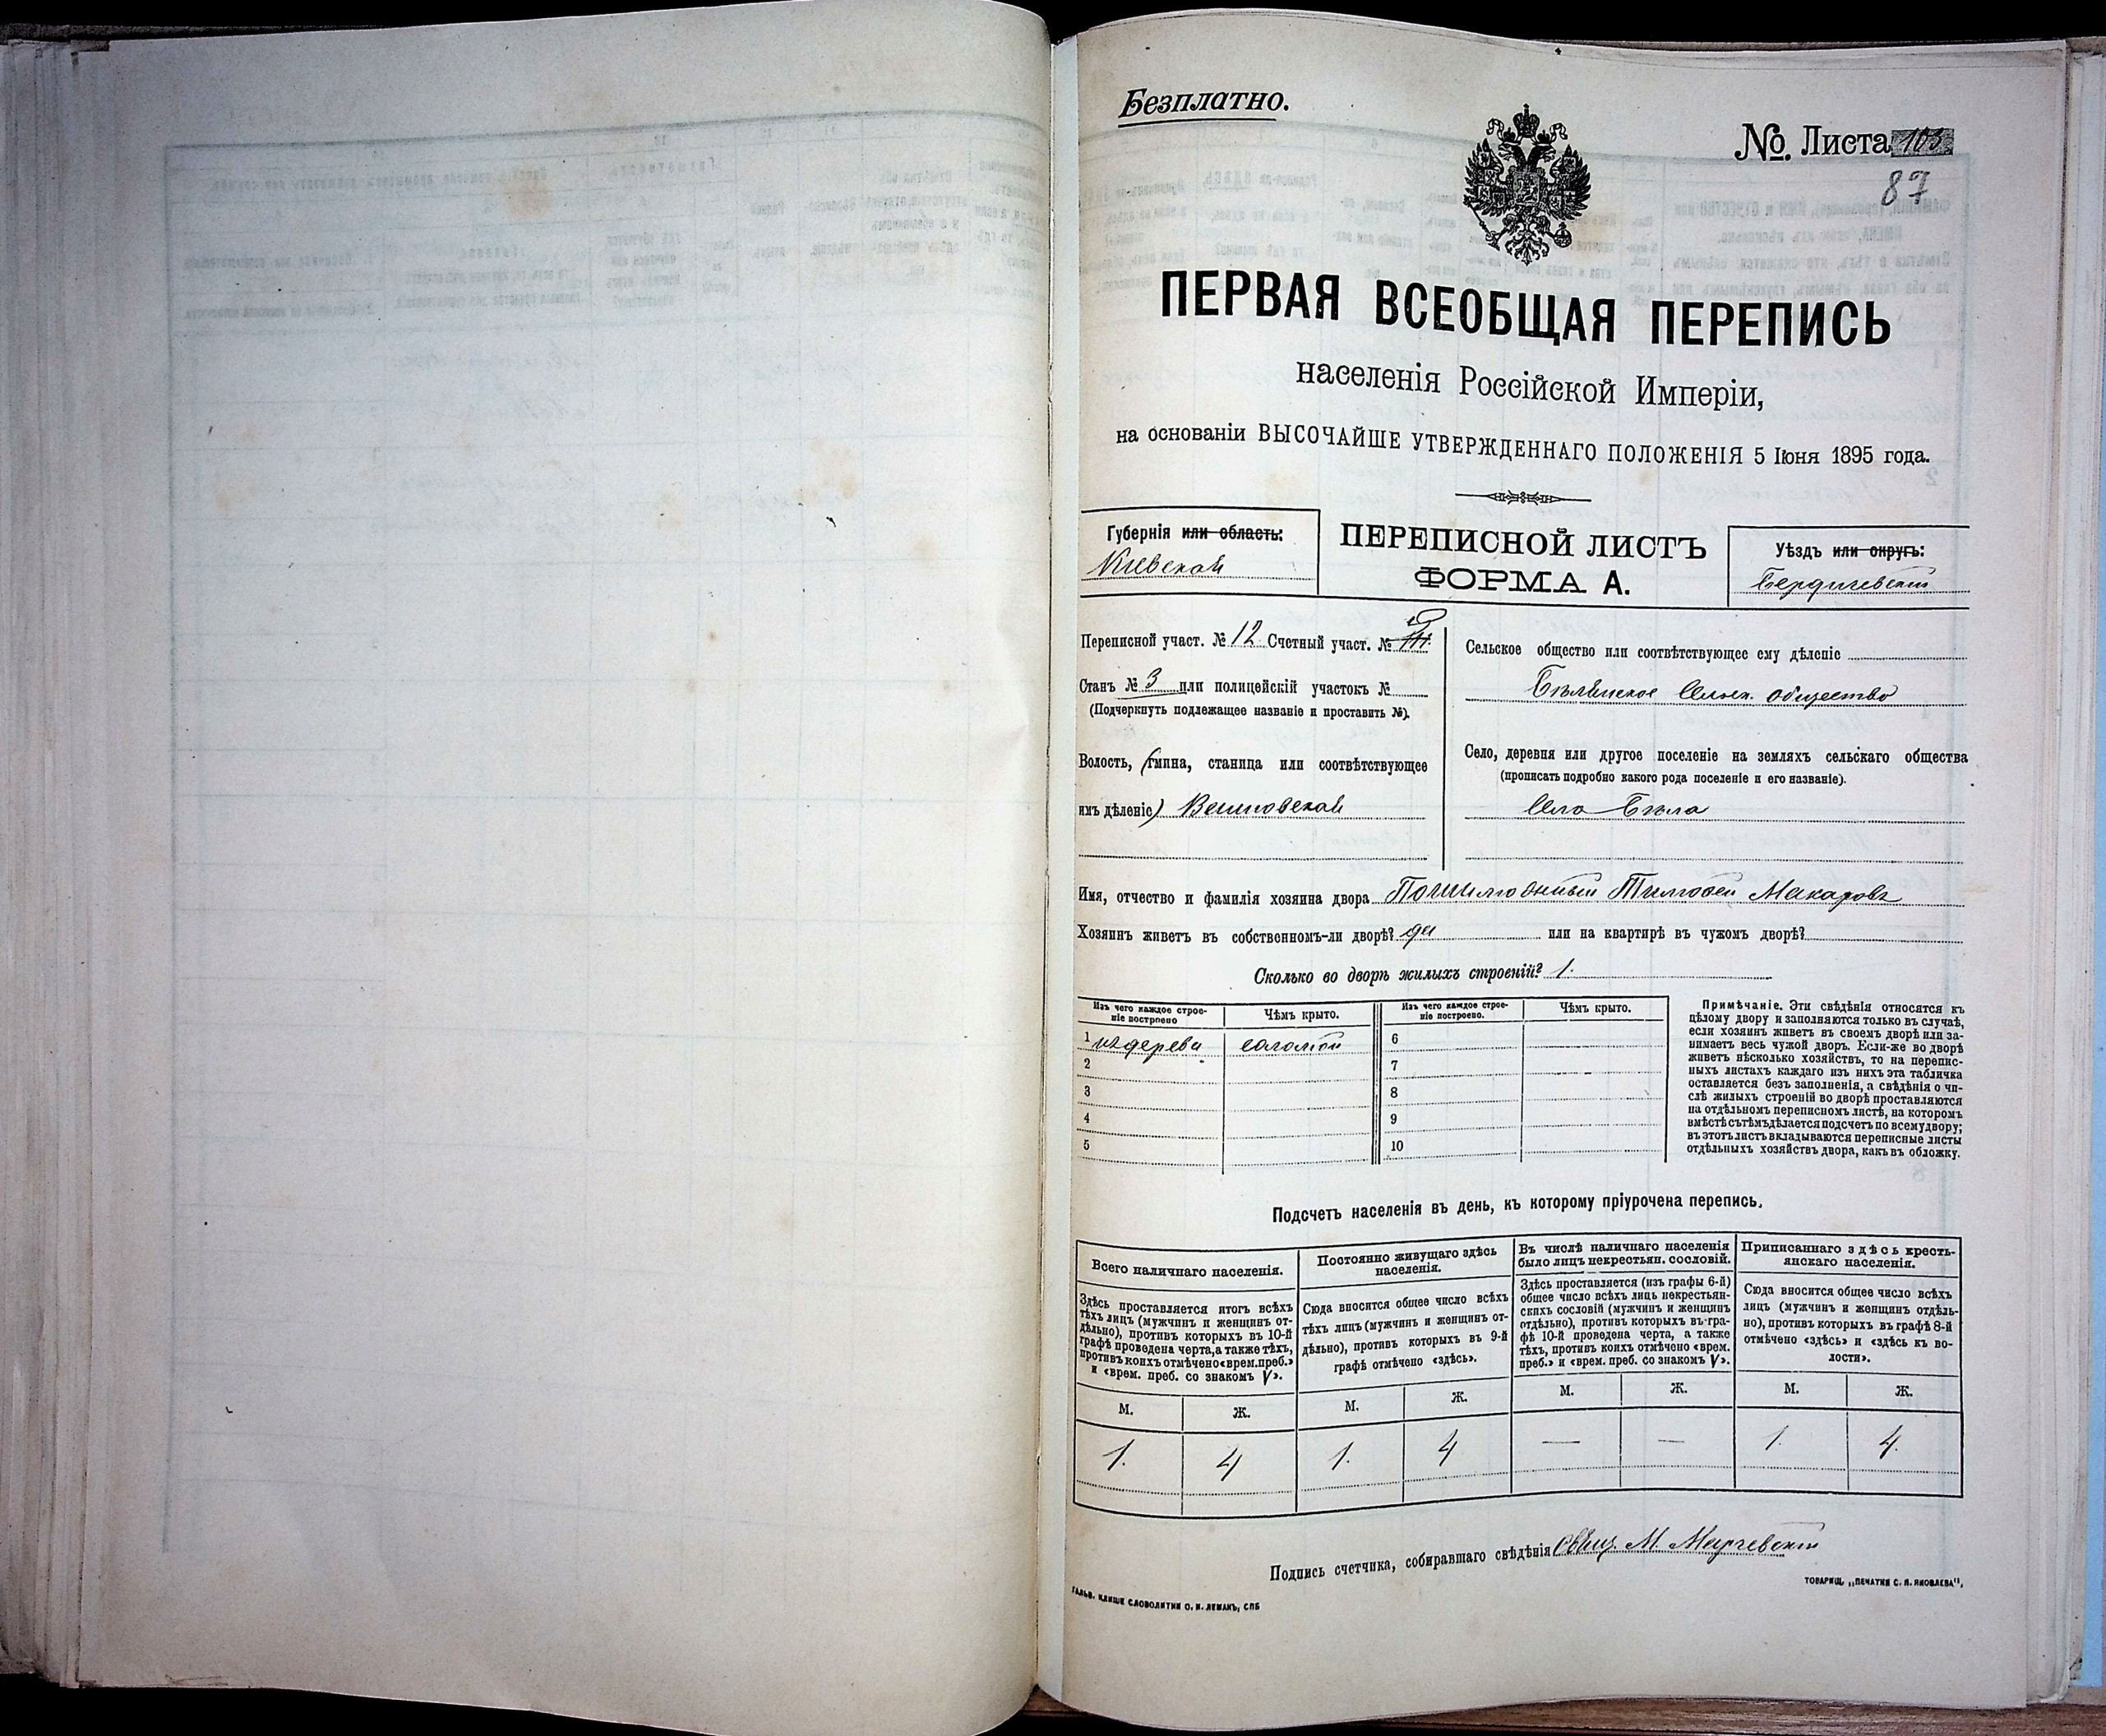 Безплатно.
№. Листа 103
87
ПЕРВАЯ ВСЕОБЩАЯ ПЕРЕПИСЬ
населенія Россійской Имперіи,
на основаніи ВЫСОЧАЙШЕ УТВЕРЖДЕННАГО ПОЛОЖЕНІЯ 5 Іюня 1895 года.
Губернія или область:
Кіевской
ПЕРЕПИСНОЙ ЛИСТЪ
ФОРМА А.
Уѣздъ или округъ:
Бердичевскій
Переписной участ. № 12 Счетный участ. №
Станъ № 3 или полицейскій участокъ №
(Подчеркнуть подлежащее названіе и проставить №).
Волость, (гмина, станица или соотвѣтствующее
имъ дѣленіе)
Сельское общество или соотвѣтствующее ему дѣленіе
Сельск. общество
Село, деревня или другое поселеніе на земляхъ сельскаго общества
(прописать подробно какого рода поселеніе и его названіе).
Село Бѣла
Имя, отчество и фамилія хозяина двора Тимофей Макаровъ
Хозяинъ живетъ въ собственномъ-ли дворѣ? да или на квартирѣ въ чужомъ дворѣ?
Сколько во дворѣ жилыхъ строеній? 1.
Изъ чего каждое строе-
ніе построено
Чѣмъ крыто.
Изъ чего каждое строе-
ніе построено.
Чѣмъ крыто.
1 из дерева соломой 6
2 7
3 8
4 9
5 10
Примѣчаніе. Эти свѣдѣнія относятся къ
цѣлому двору и заполняются только въ случаѣ,
если хозяинъ живетъ въ своемъ дворѣ или за-
нимаетъ весь чужой дворъ. Если-же во дворѣ
живетъ нѣсколько хозяйствъ, то на перепис-
ныхъ листахъ каждаго изъ нихъ эта табличка
оставляется безъ заполненія, а свѣдѣнія о чи-
слѣ жилыхъ строеній во дворѣ проставляются
на отдѣльномъ переписномъ листѣ, на которомъ
вмѣстѣ съ тѣмъ дѣлается подсчетъ по всему двору;
въ этотъ листъ вкладываются переписные листы
отдѣльныхъ хозяйствъ двора, какъ въ обложку.
Подсчетъ населенія въ день, къ которому пріурочена перепись.
Всего наличнаго населенія.
Здѣсь проставляется итогъ всѣхъ
тѣхъ лицъ (мужчинъ и женщинъ от-
дѣльно), противъ которыхъ въ 10-й
графѣ проведена черта, а также тѣхъ,
противъ коихъ отмѣчено «врем. преб.»
и «врем. преб. со знакомъ V».
Постоянно живущаго здѣсь
населенія.
Сюда вносится общее число всѣхъ
тѣхъ лицъ (мужчинъ и женщинъ от-
дѣльно), противъ которыхъ въ 9-й
графѣ отмѣчено «здѣсь».
Въ числѣ наличнаго населенія
было лицъ некрестьян. сословій.
Здѣсь проставляется (изъ графы 6-й)
общее число всѣхъ лицъ некрестьян-
скихъ сословій (мужчинъ и женщинъ
отдѣльно), противъ которыхъ въ гра-
фѣ 10-й проведена черта, а также
тѣхъ, противъ коихъ отмѣчено «врем.
преб.» и «врем. преб. со знакомъ V».
Приписаннаго здѣсь кресть-
янскаго населенія.
Сюда вносится общее число всѣхъ
лицъ (мужчинъ и женщинъ отдѣль-
но), противъ которыхъ въ графѣ 8-й
отмѣчено «здѣсь» и «здѣсь къ во-
лости».
М. Ж. М. Ж. М. Ж. М. Ж.
1. 4 1. 4 — — 1. 4.
Подпись счетчика, собиравшаго свѣдѣнія Свящ. М.
ГАЛЬВ. КЛИШЕ СЛОВОЛИТНИ О. И. ЛЕМАНЪ, СПБ
ТОВАРИЩ. „ПЕЧАТНЯ С. П. ЯКОВЛЕВА",